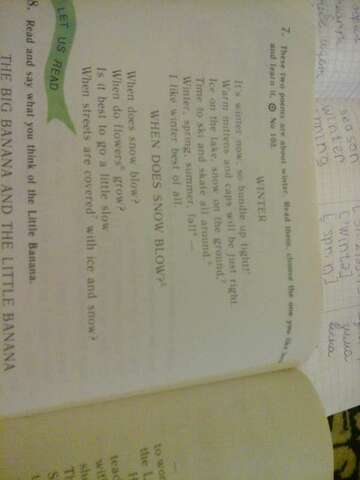 7. These two poems are about winter. Read them, choose the one you like best
and learn it. No 108.
WINTER
It's winter now, so bundle up tight!
Warm mittens and caps will be just right.
Ice on the lake, snow on the ground,
Time to ski and skate all around.
Winter, spring, summer, fall —
I like winter best of all.
WHEN DOES SNOW BLOW?
When does snow blow?
When do flowers grow?
Is it best to go a little slow
When streets are covered with ice and snow?
LET US READ
8. Read and say what you think of the Little Banana.
THE BIG BANANA AND THE LITTLE BANANA
season
winter
зима
весна
to wor
the L
H
teac
wit
sh
Th
S